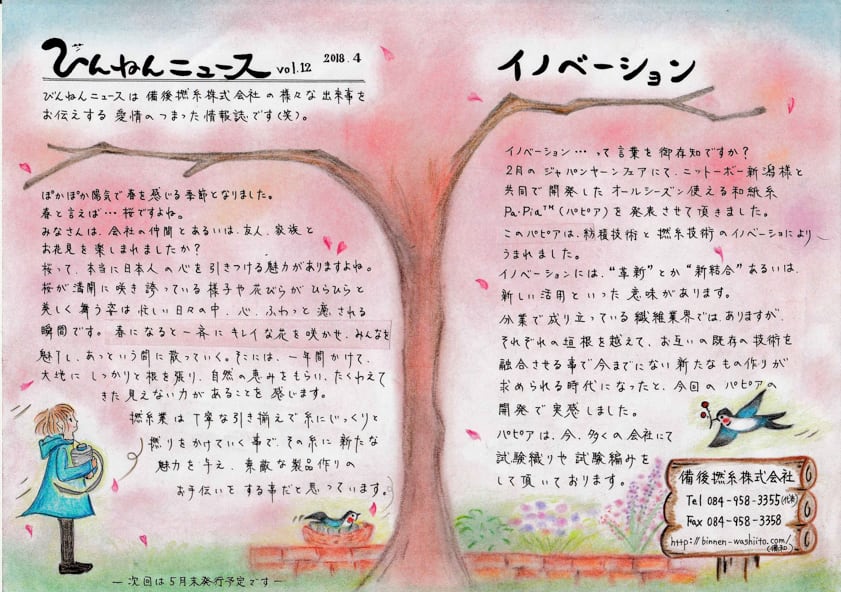 びんねんニュース vol.12 2018.4
びんねんニュースは備後撚糸株式会社の様々な出来事を
お伝えする愛情のつまった情報誌です(笑)。
ぽかぽか陽気で春を感じる季節となりました。
春と言えば…桜ですよね。
みなさんは、会社の仲間とあるいは、友人、家族と
お花見を楽しまれましたか？
桜って、本当に日本人の心を引きつける魅力がありますよね。
桜が満開に咲き誇っている様子や花びらがひらひらと
美しく舞う姿は忙しい日々の中、心、ふわっと癒される
瞬間です。春になると一斉にキレイな花を咲かせ、みんなを
魅了し、あっという間に散っていく。そこには、一年間かけて、
大地にしっかりと根を張り、自然の恵みをもらい、たくわえて
きた見えない力があることを感じます。
撚糸業は丁寧な引き揃えで糸にじっくりと
撚りをかけていく事で、その糸に新たな
魅力を与え、素敵な製品作りの
お手伝いをする事だと思っています。
ー次回は5月末発行予定ですー
イノベーション
イノベーション…って言葉を御存知ですか？
2月のジャパンヤーンフェアにて、ニットーボー新潟様と
共同で開発したオールシーズン使える和紙糸
Pa・Pia™(パピア)を発表させて頂きました。
このパピアは、紡積技術と撚糸技術のイノベーショにより
うまれました。
イノベーションには、“革新”とか“新結合”あるいは、
新しい活用といった意味があります。
分業で成り立っている繊維業界では、ありますが、
それぞれの垣根を越えて、お互いの既存の技術を
融合させる事で今までにない新たなもの作りが
求められる時代になったと、今回のパピアの
開発で実感しました。
パピアは、今、多くの会社にて
試験織りや試験編みを
して頂いております。
備後撚糸株式会社
Tel 084-958-3355(代表)
Fax 084-958-3358
http://binnen-washiito.com/